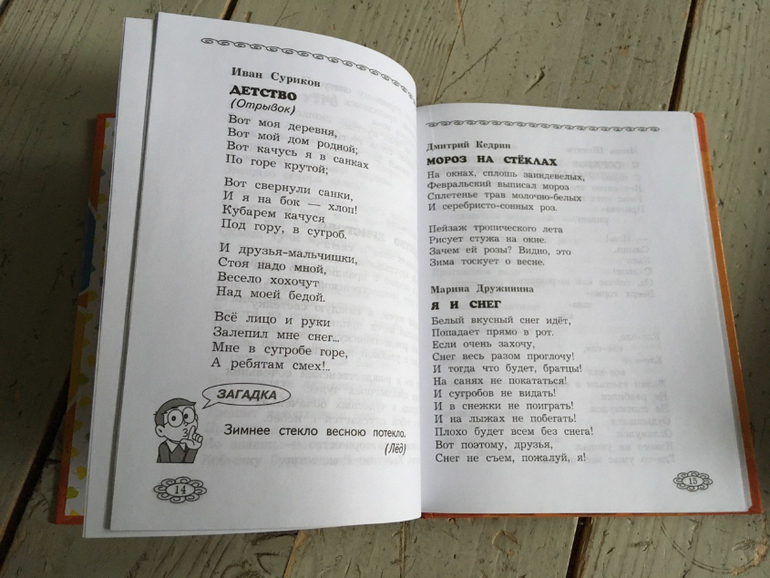 Иван Суриков
ДЕТСТВО
(Отрывок)
Вот моя деревня,
Вот мой дом родной;
Вот качусь я в санках
По горе крутой;
Вот свернули санки,
И я на бок — хлоп!
Кубарем качуся
Под гору, в сугроб.
И друзья-мальчишки,
Стоя надо мной,
Весело хохочут
Над моей бедой.
Всё лицо и руки
Залепил мне снег...
Мне в сугробе горе,
А ребятам смех!..
ЗАГАДКА
Зимнее стекло весною потекло.
(Лёд)
14
Дмитрий Кедрин
МОРОЗ НА СТЁКЛАХ
На окнах, сплошь заиндевелых,
Февральский выписал мороз
Сплетенье трав молочно-белых
И серебристо-сонных роз.
Пейзаж тропического лета
Рисует стужа на окне.
Зачем ей розы? Видно, это
Зима тоскует о весне.
Марина Дружинина
Я И СНЕГ
Белый вкусный снег идёт,
Попадает прямо в рот.
Если очень захочу,
Снег весь разом проглочу!
И тогда что будет, братцы!
На санях не покататься!
И сугробов не видать!
И в снежки не поиграть!
И на лыжах не побегать!
Плохо будет всем без снега!
Вот поэтому, друзья,
Снег не съем, пожалуй, я!
15